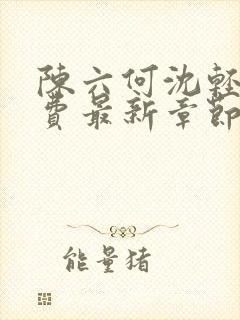 陳六何沈輕
費最新章節
能量猪